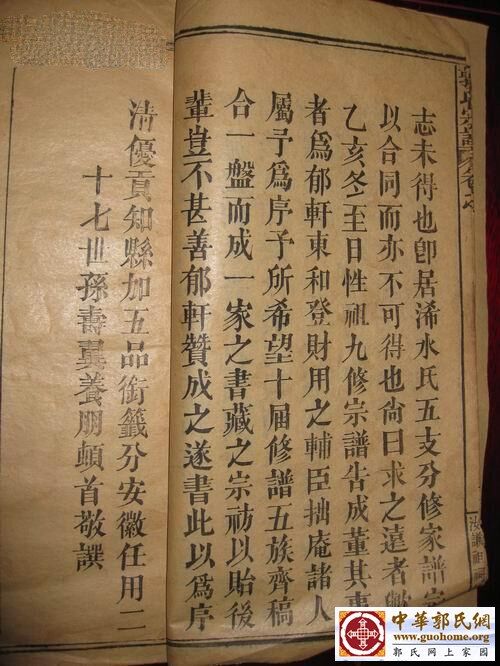 志未得也卽居浠水氏五支分修家譜
以合同而亦不可得也尙曰求之遠者
乙亥冬至日性祖九修宗譜告成董其事
者爲郁軒東和登財用之輔臣拙庵諸人
屬予爲序予所希望十届修譜五族齊稿
合一盤而成一家之書藏之宗祊以貽後
輩豈不甚善郁軒贊成之遂書此以爲序
清優貢知縣加五品銜籤分安徽任用二
十七世孫壽翼養朋頓首敬譔
中華郭氏網
www.guohome.org
郭氏网上家园